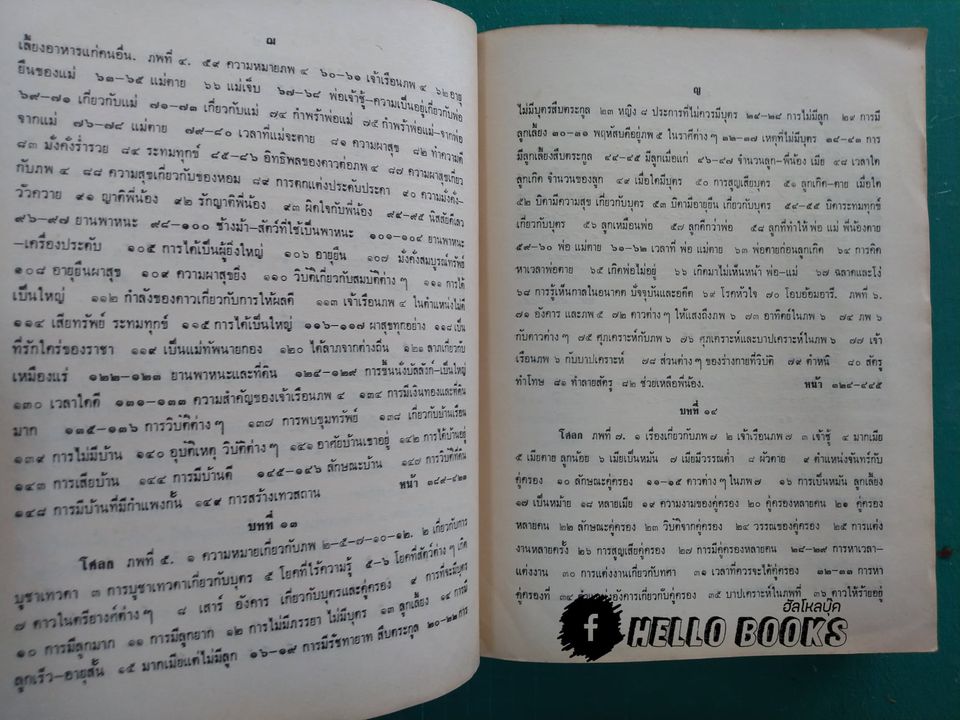 ฌ
เลี้ยงอาหารแก่คนอื่น. ภพที่ ๔. ๕๙ ความหมายภพ ๔ ๖๐-๖๑ เจ้าเรือนภพ ๔ ๖๒ อายุ
ยืนของแม่ ๖๓-๖๕ แม่ตาย ๖๖ แม่เจ็บ ๖๗-๖๘ พ่อเจ้าชู้-ความเป็นอยู่เกี่ยวกับพ่อ
๖๙-๗๑ เกี่ยวกับแม่ ๗๑-๗๓ เกี่ยวกับแม่ ๗๔ กำพร้าพ่อแม่ ๗๕ กำพร้าพ่อแม่-จากพ่อ
จากแม่ ๗๖-๗๘ แม่ตาย ๗๙-๘๐ เวลาที่แม่จะตาย ๘๑ ความผาสุข ๘๒ ทำความดี
๘๓ มั่งคั่งร่ำรวย ๘๔ ระทมทุกข์ ๘๕-๘๖ อิทธิพลของดาวต่อภพ ๔ ๘๗ ความผาสุกเกี่ยว
กับภพ ๔ ๘๘ ความสุขเกี่ยวกับของหอม ๘๙ การตกแต่งประดับประดา ๙๐ ความมั่งคั่ง-
วัวควาย ๙๑ ญาติพี่น้อง ๙๒ รักญาติพี่น้อง ๙๓ ผิดใจกับพี่น้อง ๙๔-๙๕ นิสสัยดีเลว
๙๖-๙๗ ยานพาหนะ ๙๘-๑๐๐ ช้างม้า-สัตว์ที่ใช้เป็นพาหนะ ๑๐๑-๑๐๔ ยานพาหนะ
-เครื่องประดับ ๑๐๕ การได้เป็นผู้ยิ่งใหญ่ ๑๐๖ อายุยืน ๑๐๗ มั่งคั่งสมบูรณ์ทรัพย์
๑๐๘ อายุยืนผาสุข ๑๐๙ ความผาสุขยิ่ง ๑๑๐ วิบัติเกี่ยวกับสมบัติต่าง ๆ ๑๑๑ การได้
เป็นใหญ่ ๑๑๒ กำลังของดาวเกี่ยวกับการให้ผลดี ๑๑๓ เจ้าเรือนภพ ๔ ในตำแหน่งไม่ดี
๑๑๔ เสียทรัพย์ ระทมทุกข์ ๑๑๕ การได้เป็นใหญ่ ๑๑๖-๑๑๗ ผาสุกทุกอย่าง ๑๑๘ เป็น
ที่รักใคร่ของราชา ๑๑๙ เป็นแม่ทัพนายกอง ๑๒๐ ได้ลาภจากต่างถิ่น ๑๒๑ ลาภเกี่ยวกับ
เหมืองแร่ ๑๒๒-๑๒๓ ยานพาหนะและที่ดิน ๑๒๔-๑๒๙ การขึ้นนั่งบัลลังก์-เป็นใหญ่
๑๓๐ เวลาใดดี ๑๓๑-๑๓๓ ความสำคัญของเจ้าเรือนภพ ๔ ๑๓๔ การมีเงินทองและที่ดิน
มาก ๑๓๕-๑๓๖ การวิบัติต่าง ๆ ๑๓๗ การพบขุมทรัพย์ ๑๓๘ เกี่ยวกับบ้านเรือน
๑๓๙ การไม่มีบ้าน ๑๔๐ อุบัติเหตุ วิบัติต่าง ๆ ๑๔๑ อาศัยบ้านเขาอยู่ ๑๔๒ การได้บ้านอยู่
๑๔๓ การเสียบ้าน ๑๔๔ การมีบ้านดี ๑๔๕-๑๔๖ ลักษณะบ้าน ๑๔๗ การวิบัติที่ดิน
๑๔๘ การมีบ้านที่มีกำแพงกั้น ๑๔๙ การสร้างเทวสถาน หน้า ๓๘๙-๔๒๓
บทที่ ๑๓
โศลก ภพที่ ๕. ๑ ความหมายเกี่ยวกับภพ ๒-๕-๗-๑๐-๑๒. ๒ เกี่ยวกับการ
บูชาเทวดา ๓ การบูชาเทวดาเกี่ยวกับบุตร ๕ โยคที่ไร้ความรู้ ๕-๖ โยคที่สัตว์ต่าง ๆ เกิด
๗ ดาวในตรียางค์ต่าง ๆ ๘ เสาร์ อังคาร เกี่ยวกับบุตรและคู่ครอง ๙ การที่จะมีบุตร
๑๐ การมีลูกมาก ๑๑ การมีลูกยาก ๑๒ การไม่มีภรรยา ไม่มีบุตร ๑๓ ลูกเลี้ยง ๑๔ การมี
ลูกเร็ว-อายุสั้น ๑๕ มากเมียแต่ไม่มีลูก ๑๖-๑๙ การมีรัชทายาท สืบตระกูล ๒๐-๒๒ การ
ญ
ไม่มีบุตรสืบตระกูล ๒๓ หญิง ๘ ประการที่ไม่ควรมีบุตร ๒๔-๒๘ การไม่มีลูก ๒๙ การมี
ลูกเลี้ยง ๓๐-๓๑ พฤหัสบดีอยู่ภพ ๕ ในราศีต่าง ๆ ๓๒-๓๗ เหตุที่ไม่มีบุตร ๓๘-๔๓ การ
มีลูกเลี้ยงสืบตระกูล ๔๔-๔๕ มีลูกเมื่อแก่ ๔๖-๔๗ จำนวนลูก-พี่น้อง เมีย ๔๘ เวลาใด
ลูกเกิด จำนวนของลูก ๔๙ เมื่อใดมีบุตร ๕๐ การสูญเสียบุตร ๕๑ ลูกเกิด-ตาย เมื่อใด
๕๒ บิดามีความสุข เกี่ยวกับบุตร ๕๓ บิดามีอายุยืน เกี่ยวกับบุตร ๕๔-๕๕ บิดาระทมทุกข์
เกี่ยวกับบุตร ๕๖ ลูกเหมือนพ่อ ๕๗ ลูกดีกว่าพ่อ ๕๘ ลูกที่ทำให้ พ่อ แม่ พี่น้องตาย
๕๙-๖๐ พ่อ แม่ตาย ๖๑-๖๒ เวลาที่ พ่อ แม่ตาย ๖๓ พ่อตายก่อนลูกเกิด ๖๔ การคิด
หาเวลาพ่อตาย ๖๕ เกิดพ่อไม่อยู่ ๖๖ เกิดมาไม่เห็นหน้า พ่อ-แม่ ๖๗ ฉลาดและโง่
๖๘ การรู้เห็นกาลในอนาคต ปัจจุบันและอดีต ๖๙ โรคหัวใจ ๗๐ โอบอ้อมอารี. ภพที่ ๖.
๗๑ อังคาร และภพ ๕ ๗๒ ดาวต่าง ๆ ให้แสงถึงภพ ๖ ๗๓ อาทิตย์ในภพ ๖ ๗๔ ภพ ๖
กับดาวต่าง ๆ ๗๕ ศุภเคราะห์กับภพ ๖ ๗๖ ศุภเคราะห์และบาปเคราะห์ในภพ ๖ ๗๗ เจ้า
เรือนภพ ๖ กับบาปเคราะห์ ๗๘ ส่วนต่าง ๆ ของร่างกายที่วิบัติ ๗๙ ตำหนิ ๘๐ สัตรู
ทำโทษ ๘๑ ทำลายสัตรู ๘๒ ช่วยเหลือพี่น้อง. หน้า ๓๒๔-๔๔๕
บทที่ ๑๔
โศลก ภพที่ ๗. ๑ เรื่องเกี่ยวกับภพ ๗ ๒ เจ้าเรือนภพ ๗ ๓ เจ้าชู้ ๔ มากเมีย
๕ เมียตาย ลูกน้อย ๖ เมียเป็นหมัน ๗ เมียมีวรรณต่ำ ๘ ผัวตาย ๙ ตำแหน่งจันทร์กับ
คู่ครอง ๑๐ ลักษณะคู่ครอง ๑๑-๑๕ ดาวต่าง ๆ ในภพ ๗ ๑๖ การเป็นหมัน ลูกเลี้ยง
๑๗ เป็นหม้าย ๑๘ หลายเมีย ๑๙ ความงามของคู่ครอง ๒๐ คู่ครองหลายคน ๒๑ คู่ครอง
หลายคน ๒๒ ลักษณะคู่ครอง ๒๓ วิบัติจากคู่ครอง ๒๔ วรรณของคู่ครอง ๒๕ การแต่ง
งานหลายครั้ง ๒๖ การสูญเสียคู่ครอง ๒๗ การมีคู่ครองหลายคน ๒๘-๒๙ การหาเวลา-
แต่งงาน ๓๐ การแต่งงานเกี่ยวกับทศา ๓๑ เวลาที่ควรจะได้คู่ครอง ๓๒-๓๓ การหา
คู่ครองที่ ๓๔ เกี่ยวกับคู่ครอง ๓๕ บาปเคราะห์ในภพที่ ๗ ๓๖ ดาวให้ร้ายอยู่
ฮัลโหลบุ๊ค
f HELLO BOOKS